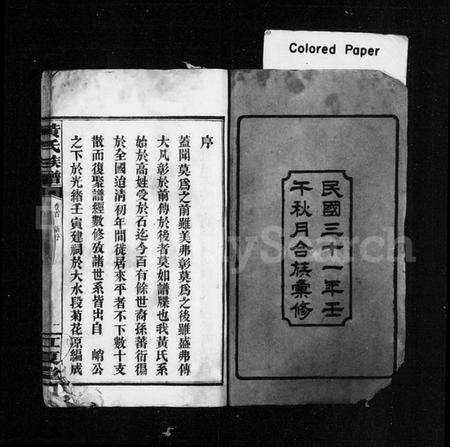 Colored Paper
民國三十一年壬
午秋月合族彙修
序
蓋聞莫為之前雖美弗彰莫為之後雖盛弗傳
大凡彰於前傳於後者莫如譜牒也我黃氏系
始於高姓受於石迄今百有餘世裔孫蕃衍徧
於全國迨清初年間徙居來平者不下數十支
散而復聚譜經數修攷諸世系皆出自 峭公
之下於光緒壬寅建祠於大水段菊花原編成
黃氏族譜
卷首
江夏堂